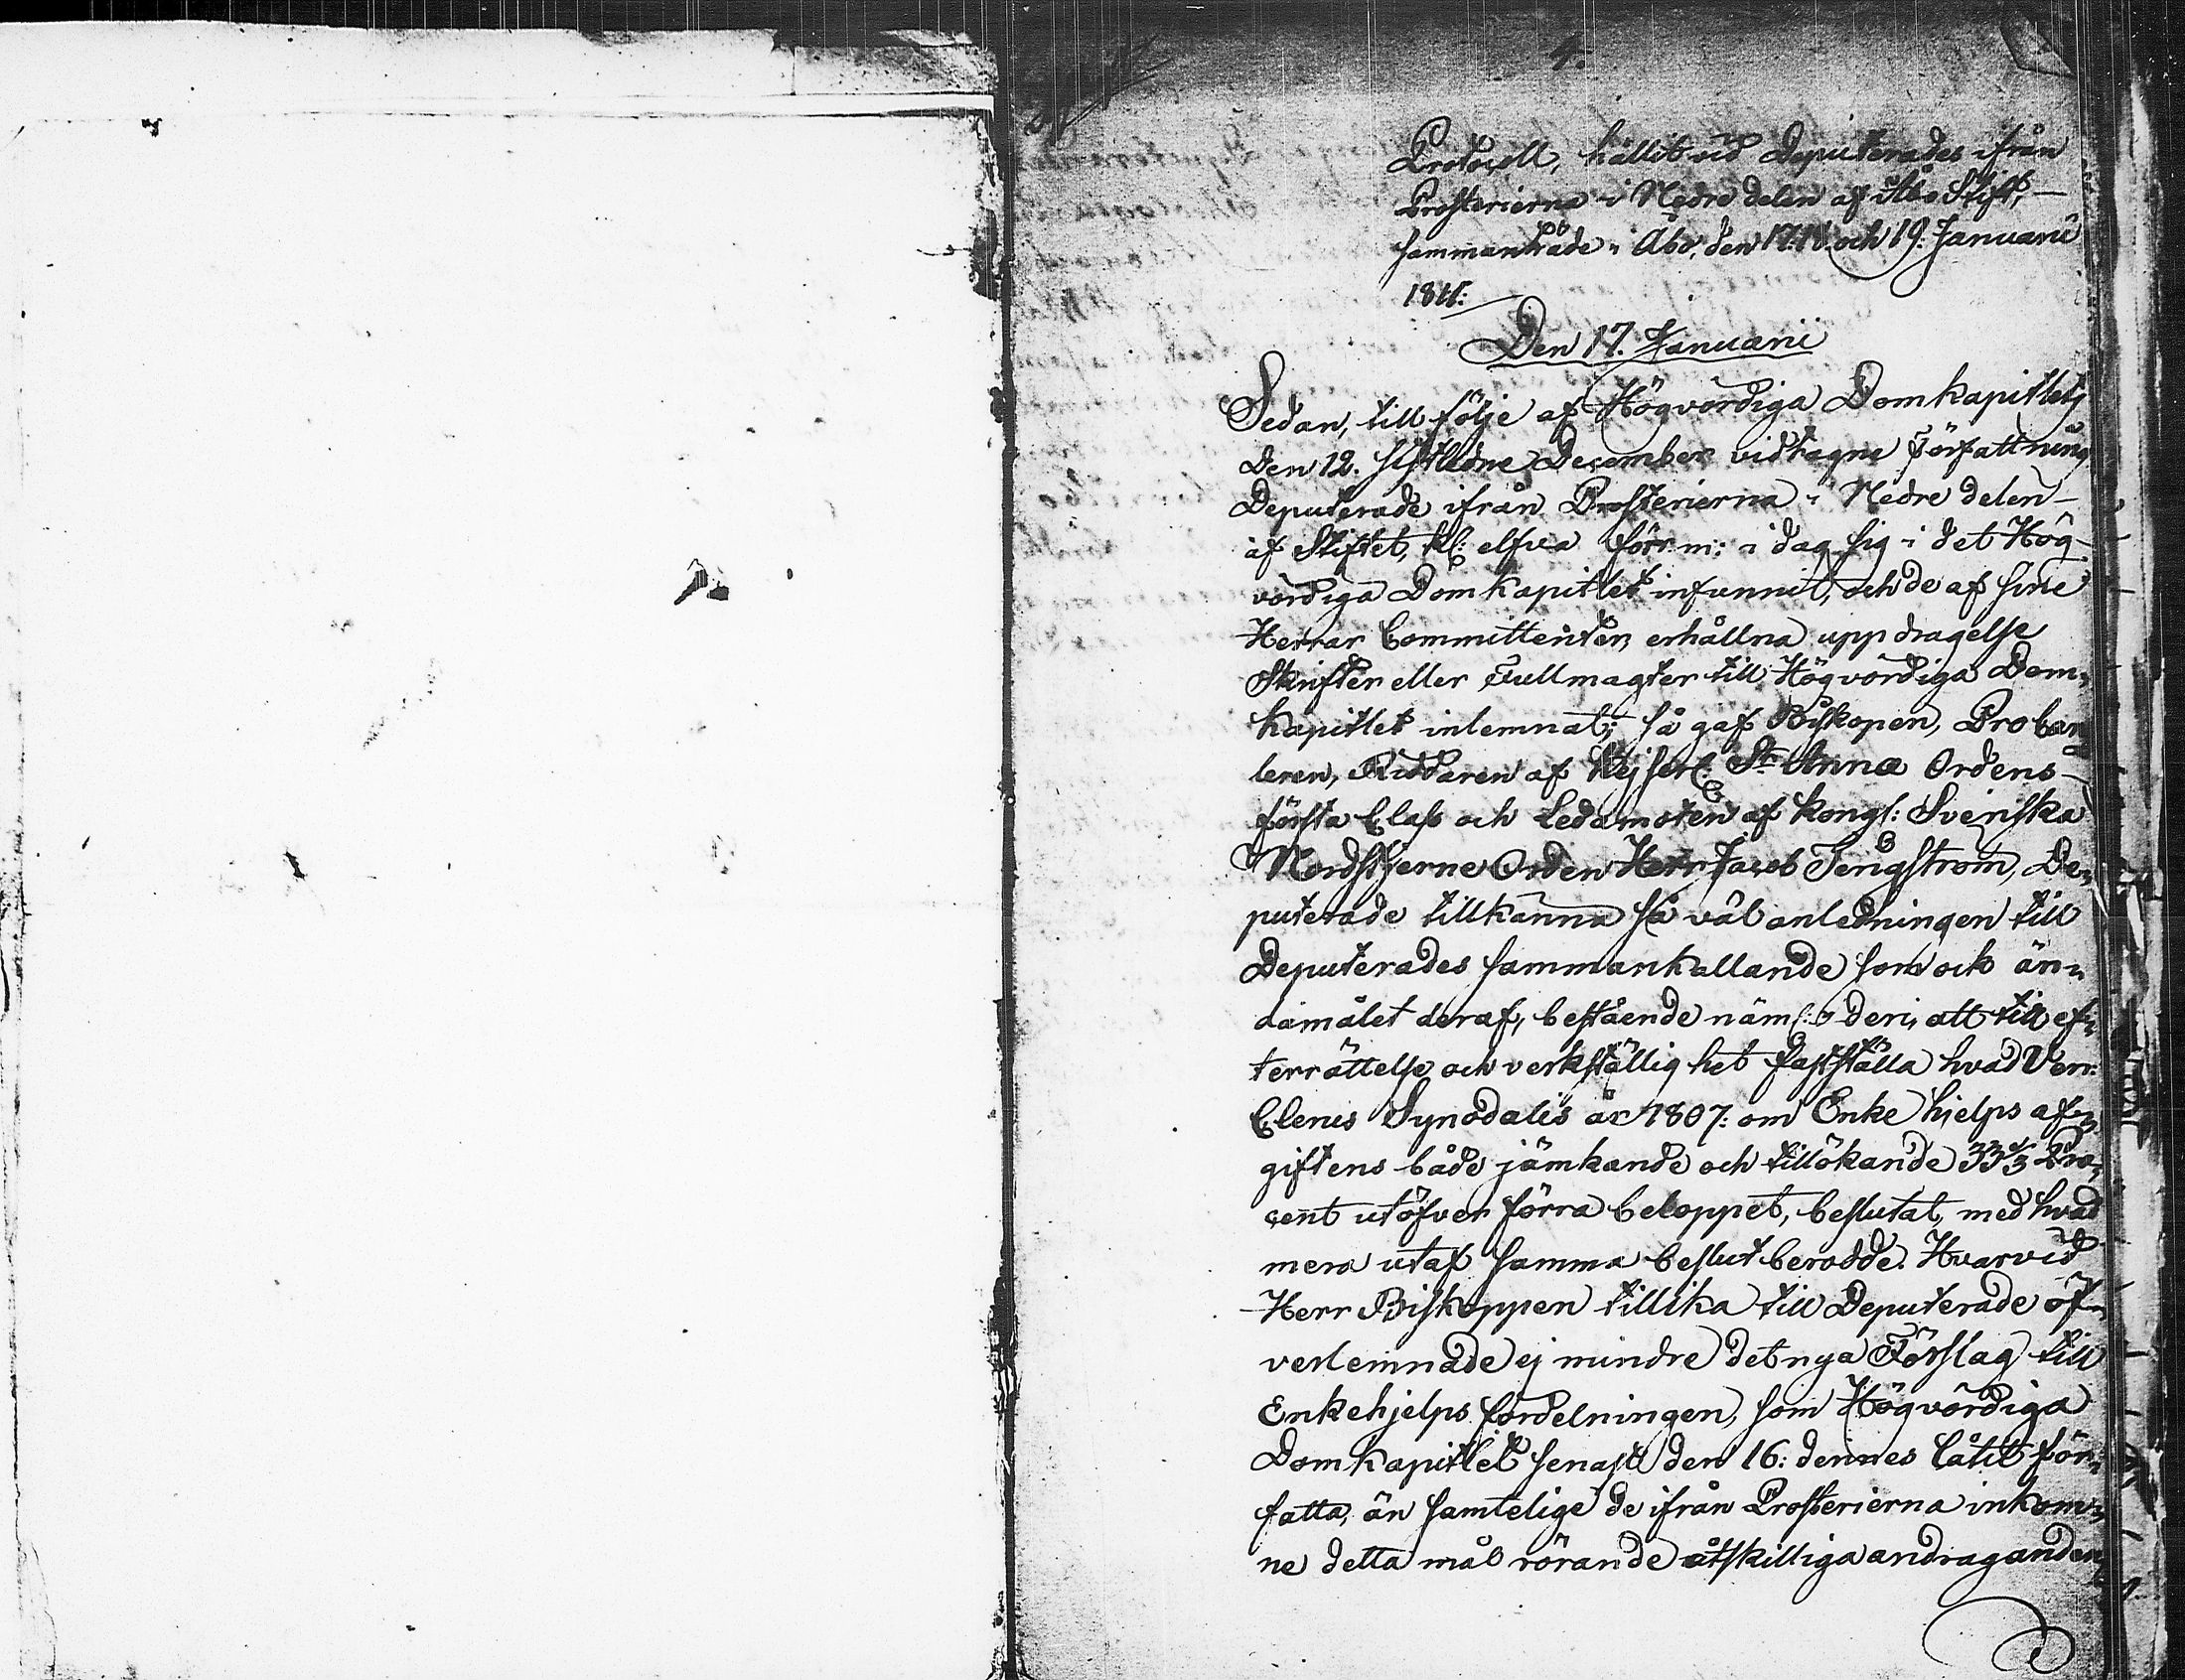 4.
Protocoll, hållit vid Deputerades ifrån
Prosterierna i Nedre delen af Åbo Stift,
sammanträde i Åbo, den 17. 18. och 19. Januarii
1811:
Den 17. Januarii
Sedan, till följe af Högvördiga Domkapitlets
den 12. sistledne December vidtagne Författning
Deputerade ifrån Prosterierna i Nedre delen
af Stiftet, kl: elfva förrm: i dag sig i det Hög-
vördiga Domkapitlet infunnit, och de af sine
Herrar Committenter, erhållna uppdragelse
Skrifter eller Fullmagter till Högvördiga Dom,,
kapitlet inlemnat; så gaf Biskopen, Procanc
leren, Riddaren af Kejserl. St. Annæ Ordens
första Class och Ledamoten af Kongl: Svenska
Nordstjerne Orden Herr Jacob Tengström, De,,
puterade tillkänna så väl anledningen till
Deputerades sammankallande som ock än,,
damålet deraf, bestående näml: deri, att till ef,,
terrättelse och verkställighet fastställa hvad Ven:
Clerus Synodalis år 1807: om Enkehjelps af,,
giftens både jämkande och tillökande 33⅓ Pro,,
cent utöfver förra beloppet, beslutat, med hvad
mera utaf samma beslut berodde. Hvarvid
Herr Biskoppen tillika till Deputerade öf,,
verlemnade ej mindre det nya Förslag till
Enkehjelps fördelningen, som Högvördiga
Domkapitlet senast den 16: dennes låtit för,,
fatta, än samtelige de ifrån Prosterierna inkom,,
ne detta mål rörande åtskilliga andraganden